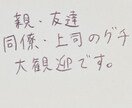 親・友達
同僚・上司のグチ
大観迎です。